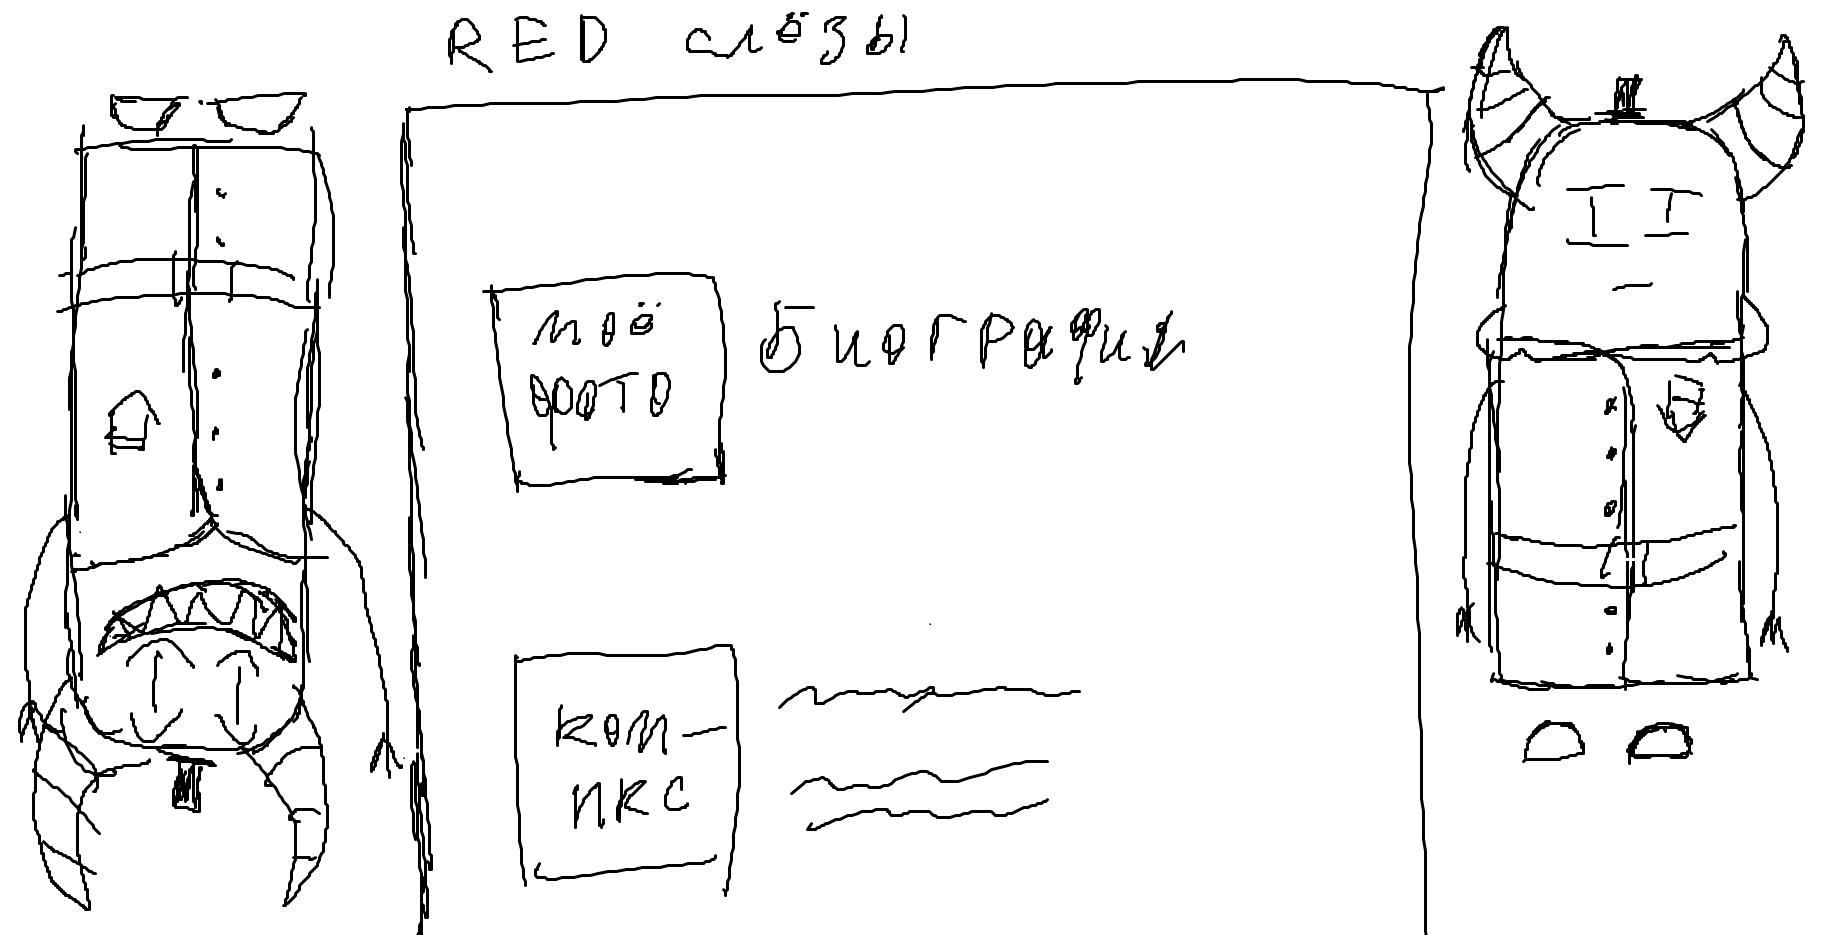 RED слёзы
моё
фото
биография
ком-
икс